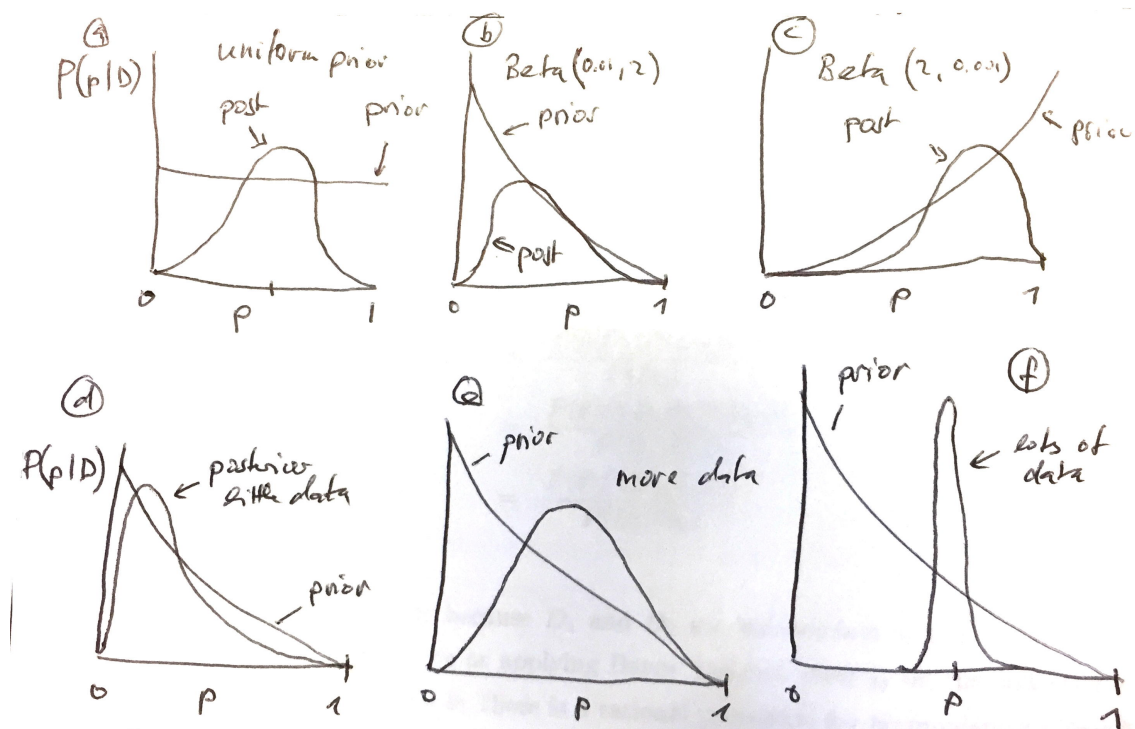 a
P(p|D)
uniform prior
post
prior
0
p
1
b
Beta(0.01, 2)
prior
post
0
p
1
c
Beta (2, 0.001)
post
prior
0
p
1
d
P(p|D)
posterior
little data
prior
0
p
1
e
prior
more data
0
p
1
f
prior
lots of
data
0
p
1